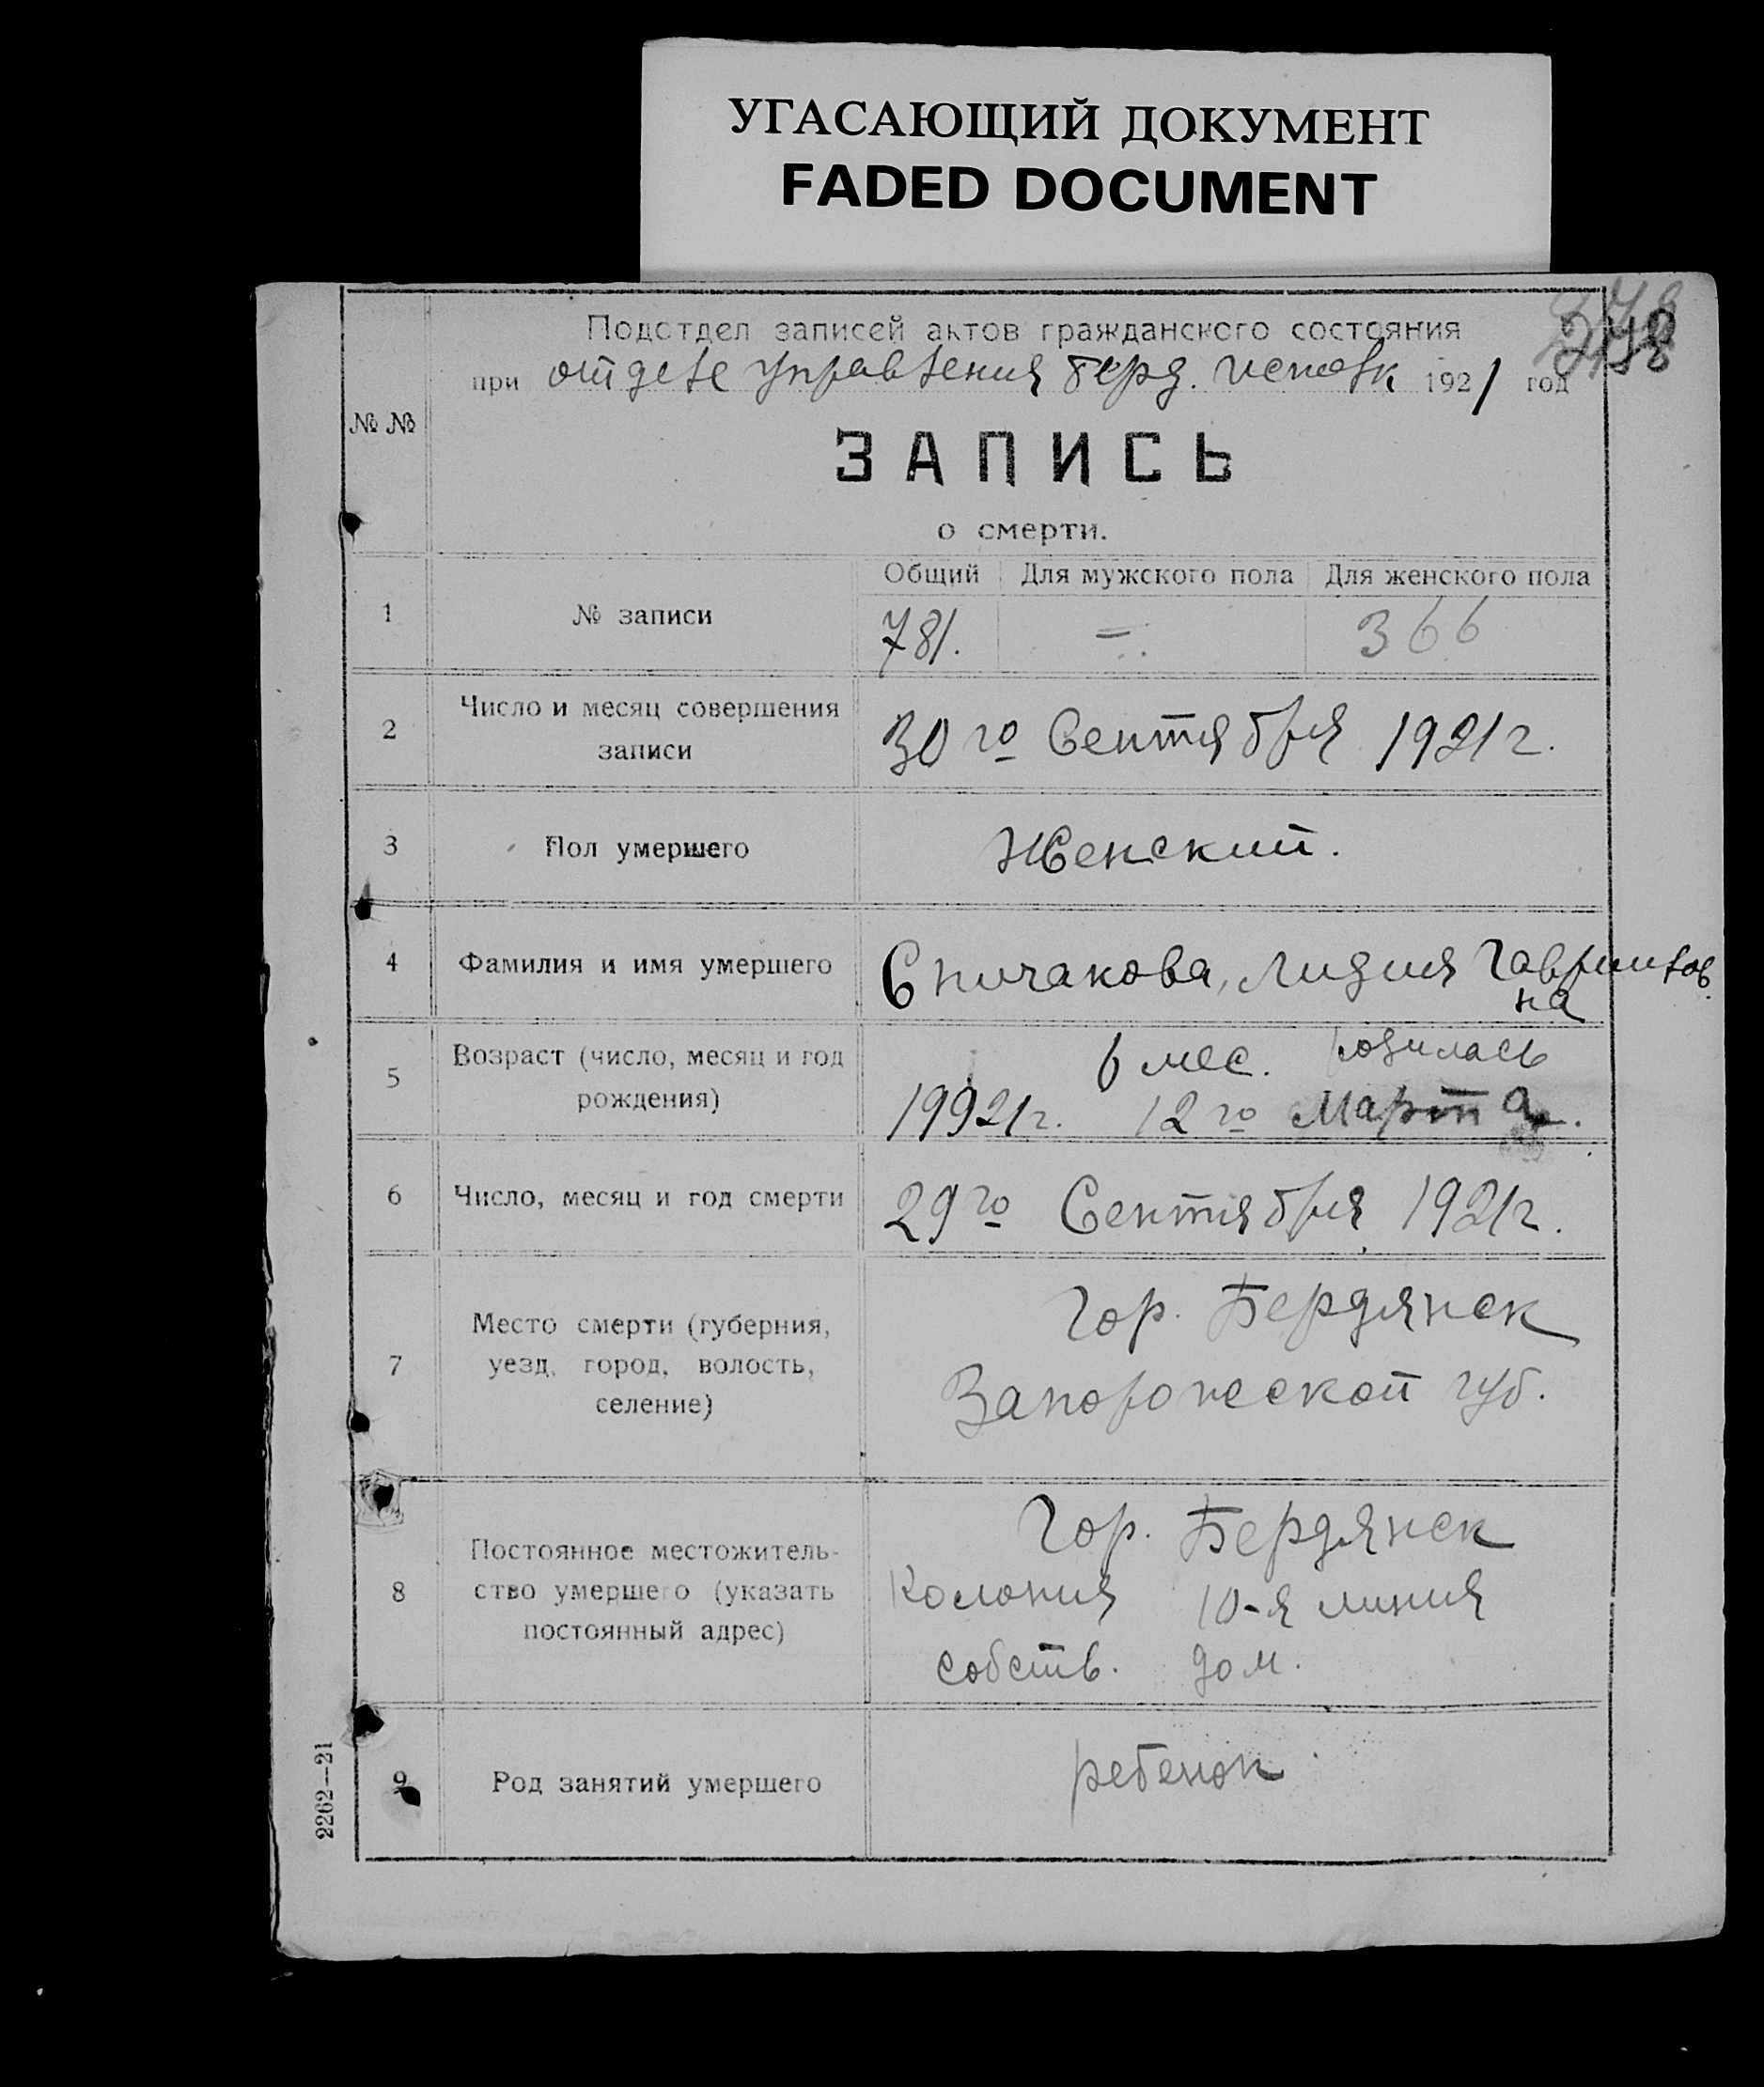 УГАСАЮЩИЙ ДОКУМЕНТ
FADED DOCUMENT
Подотдел записей актов гражданского состояния
при отделе управления берд. исполк 1921 год
№ №
ЗАПИСЬ
о смерти.
Общий Для мужского пола Для женского пола
1 № записи 781. 366
2 Число и месяц совершения
записи
30 го Сентября 1921 г.
3 Пол умершего Женский.
4 Фамилия и имя умершего Спичакова, Лидия Гаврилов
на
5 Возраст (число, месяц и год
рождения)
6 мес. родилась
19921 г. 12 го Марта.
6 Число, месяц и год смерти 29 го Сентября 1921 г.
7 Место смерти (губерния,
уезд, город, волость,
селение)
Гор. Бердянск
Запорожской губ.
8 Постоянное местожитель-
ство умершего (указать
постоянный адрес)
Гор. Бердянск
Колония 10-я линия
собств. дом.
9 Род занятий умершего ребенок
2262—21